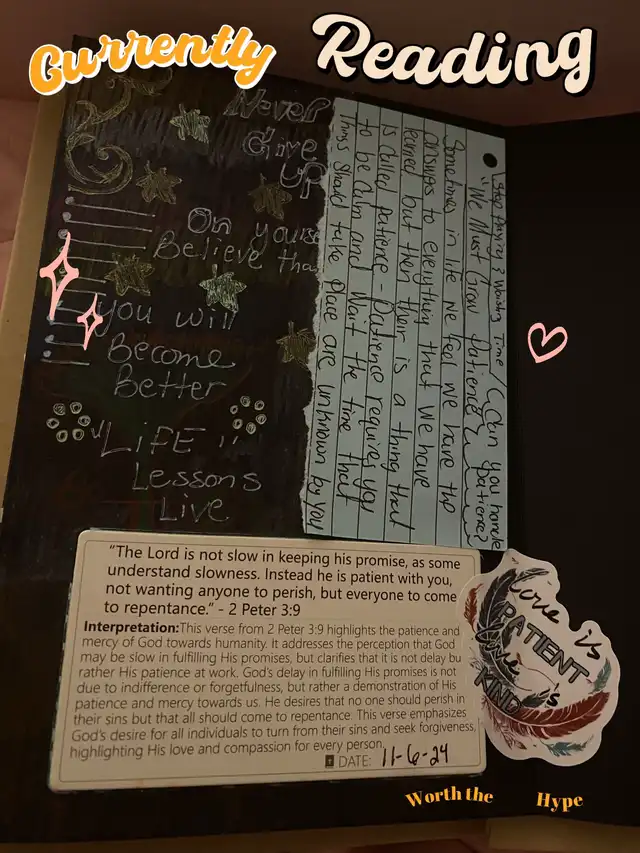 Currently Reading
Never
Give
Up
On yourse
Believe that
You will
Become
Better
"LiFE"
Lessons
Live
Stop Playing & Waisting Time / Can you handle patience?
"We Must Grow Patience"
Sometimes in life we feel we have the
answers to everything that we have
learned but then their is a thing that
is called patience - Patience requires you
to be calm and wait the time that
things should take place are unknown by you
"The Lord is not slow in keeping his promise, as some
understand slowness. Instead he is patient with you,
not wanting anyone to perish, but everyone to come
to repentance." - 2 Peter 3:9
Interpretation:This verse from 2 Peter 3:9 highlights the patience and
mercy of God towards humanity. It addresses the perception that God
may be slow in fulfilling His promises, but clarifies that it is not delay bu
rather His patience at work. God's delay in fulfilling His promises is not
due to indifference or forgetfulness, but rather a demonstration of His
patience and mercy towards us. He desires that no one should perish in
their sins but that all should come to repentance. This verse emphasizes
God's desire for all individuals to turn from their sins and seek forgiveness,
highlighting His love and compassion for every person.
DATE: 11-6-24
Love is
PATIENT
love is
KIND
Worth the Hype